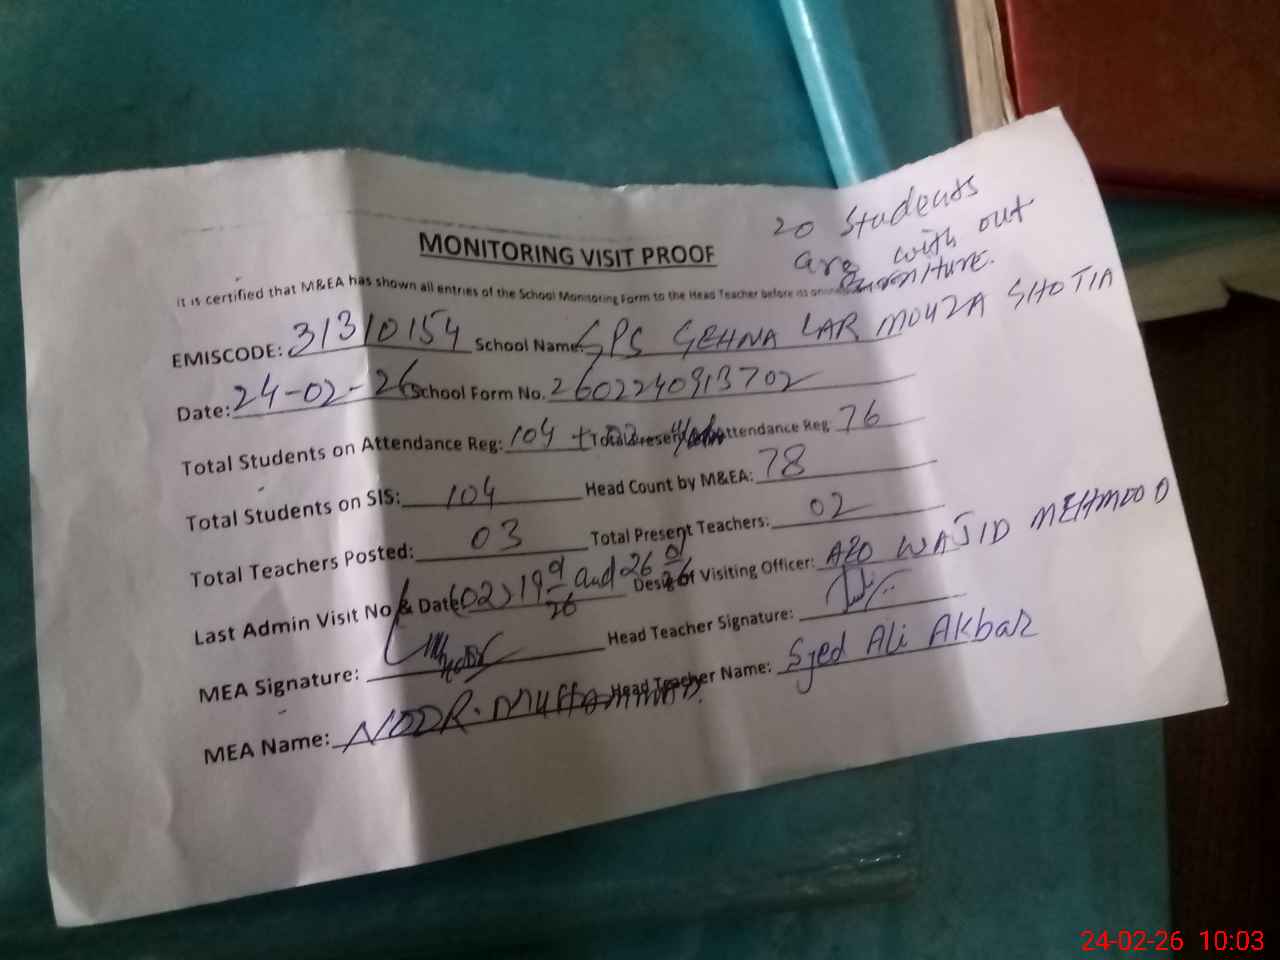 20 Students
are with out
Furniture.
MONITORING VISIT PROOF
It is certified that M&EA has shown all entries of the School Monitoring Form to the Head Teacher before its
EMISCODE: 31310154 School Name: GPS GEHNA LAR MOUZA SHOTIA
Date: 24-02-26 School Form No. 2602240913702
Total Students on Attendance Reg: 104 + 02 Total Present Attendance Reg 76
Total Students on SIS: 104 Head Count by M&EA: 78
Total Teachers Posted: 03 Total Present Teachers: 02
Last Admin Visit No & Date (02) 19 and 26 Desig of Visiting Officer: AEO WAJID MEHMOOD
MEA Signature: Head Teacher Signature:
MEA Name: NOOR MUHAMMAD. Head Teacher Name: Syed Ali Akbar
24-02-26 10:03